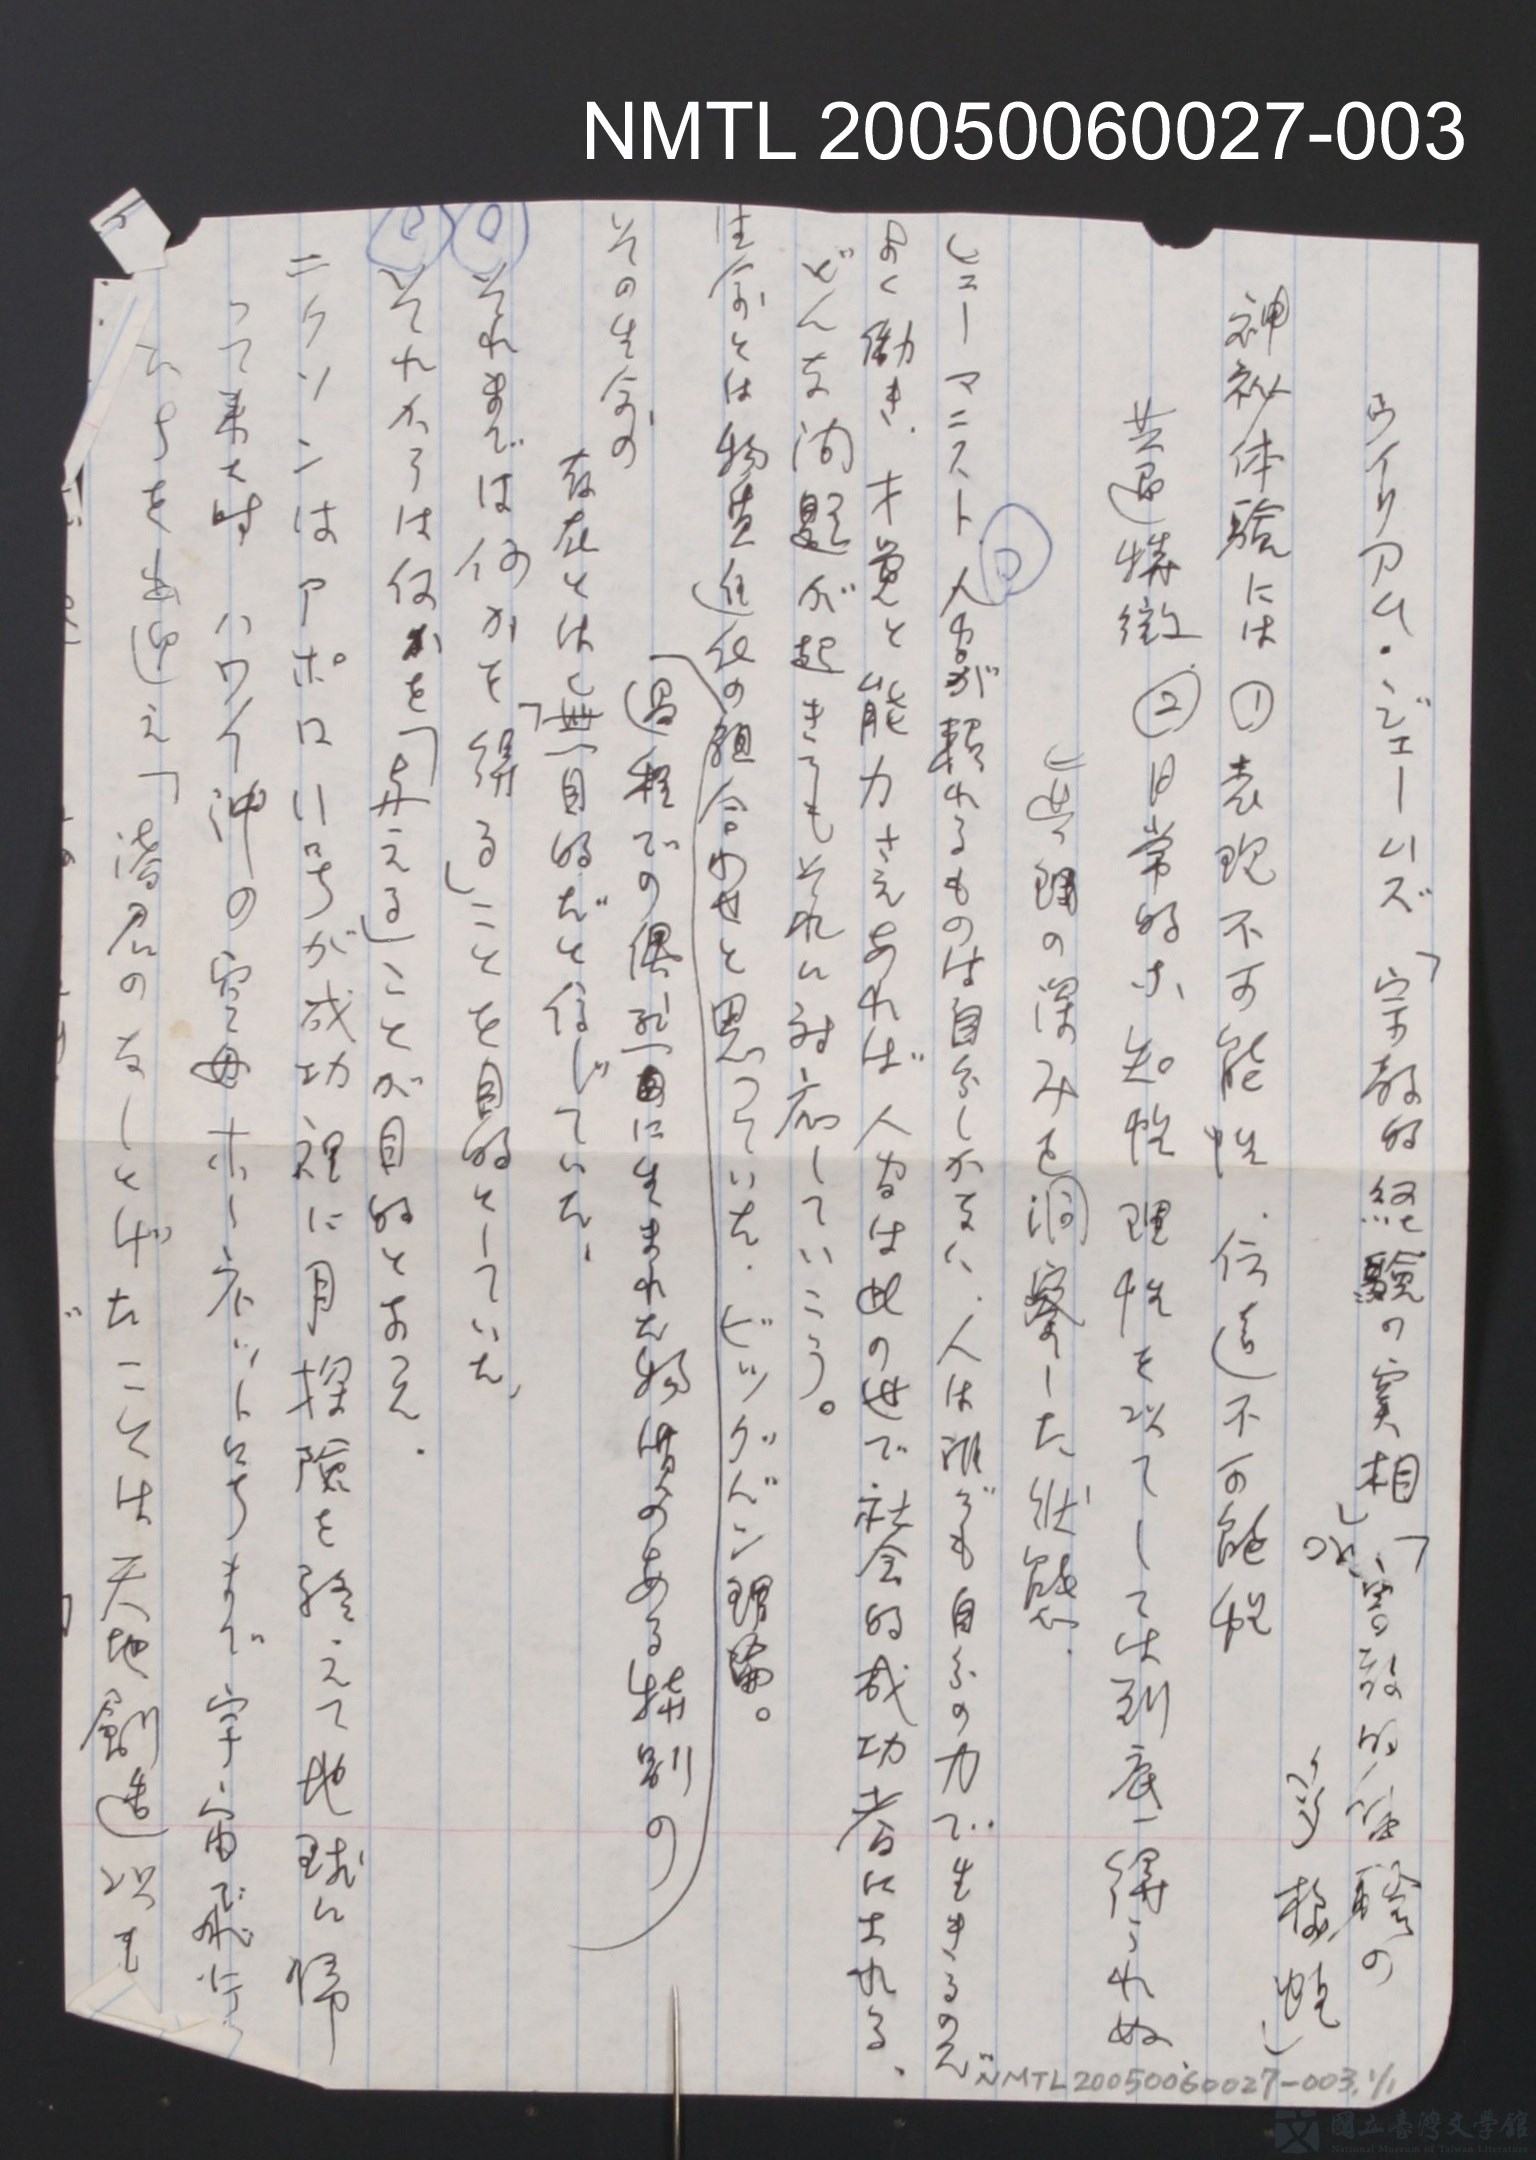 NMTL 20050060027-003
ウイリアム・ジェームズ「宗教的経験の実相」「宗教的経験の
多様性」
神秘体験には ①表現不可能性、伝達不可能性
共通特徴 ②日常的な知性理性を以てしては到底得られぬ
真理の深みを洞察した状態.
ヒューマニスト 人間が頼れるものは自分しかない、人は誰でも自分の力で生きるのだ
よく働き、才覚と能力さえあれば人間は此の世で社会的成功者になれる、
どんな問題が起きてもそれに対応していこう。
生命とは物質進化の組合わせと思っていた. ビッグバン理論。
過程での偶然に生まれた物質のある特別の
その生命の
存在とは「無目的だと信じていた、
それまでは何かを「得る」ことを目的としていた、
それからは何かを「与える」ことが目的となった.
ニクソンはアポロ11号が成功裡に月探険を終えて地球に帰
って来た時 ハワイ沖の空母ホーネット号まで宇宙飛行
たちを出迎え「諸君のなしとげたことは天地創造以来
NMTL20050060027-003.1/1
國立臺灣文學館
National Museum of Taiwan Literature